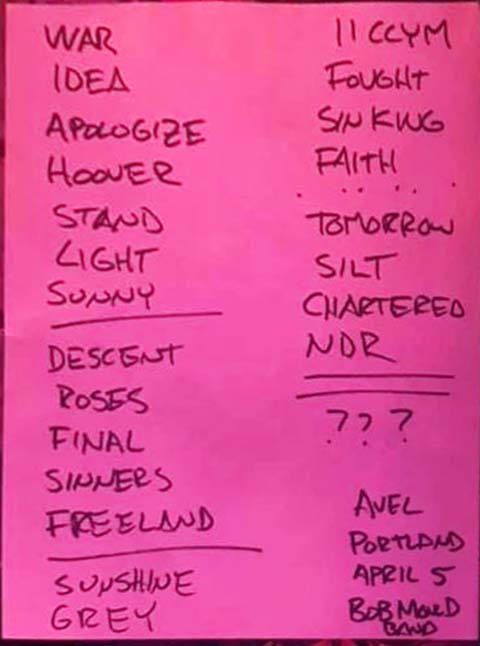 WAR
IDEA
APOLOGIZE
HOOVER
STAND
LIGHT
SUNNY
DESCENT
ROSES
FINAL
SINNERS
FREELAND
SUNSHINE
GREY
IICCYM
FOUGHT
SINKING
FAITH
TOMORROW
SILT
CHARTERED
NDR
? ? ?
AVEL
PORTLAND
APRIL 5
BOB MOULD
BAND